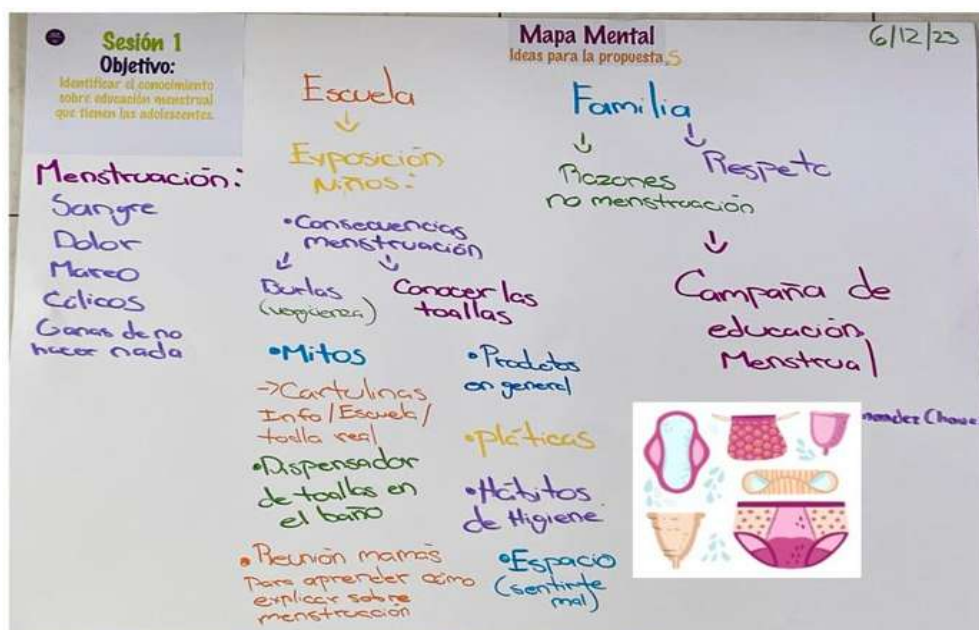 Sesión 1
Objetivo:
Identificar el conocimiento
sobre educación menstrual
que tienen las adolescentes.
Mapa Mental
Ideas para la propuesta.
6/12/23
Menstruación:
Sangre
Dolor
Mareo
Cólicos
Ganas de no
hacer nada
Escuela
Exposición
Niños:
•Consecuencias
menstruación
Burlas
(vergüenza)
Conocer las
toallas
•Mitos
->Cartulinas
Info/Escuela/
toalla real
•Dispensador
de toallas en
el baño
•Reunión mamás
Para aprender cómo
explicar sobre
menstruación
•Productos
en general
•Pláticas
•Hábitos
de Higiene
•Espacio
(sentirte
mal)
Familia
Razones
no menstruación
Respeto
Campaña de
educación
Menstrual